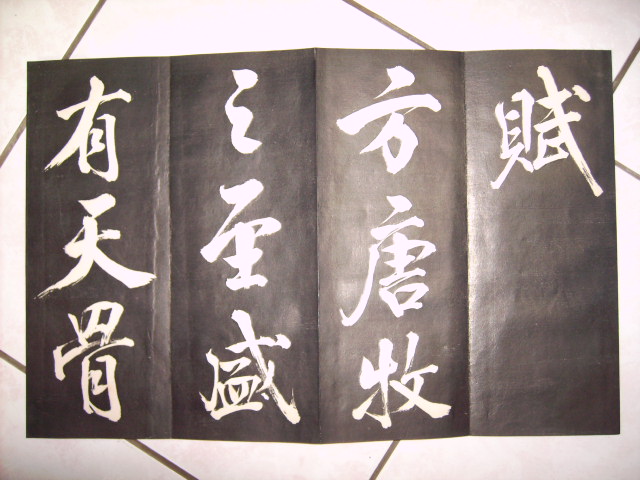 賦
方唐牧
之至盛
有天骨